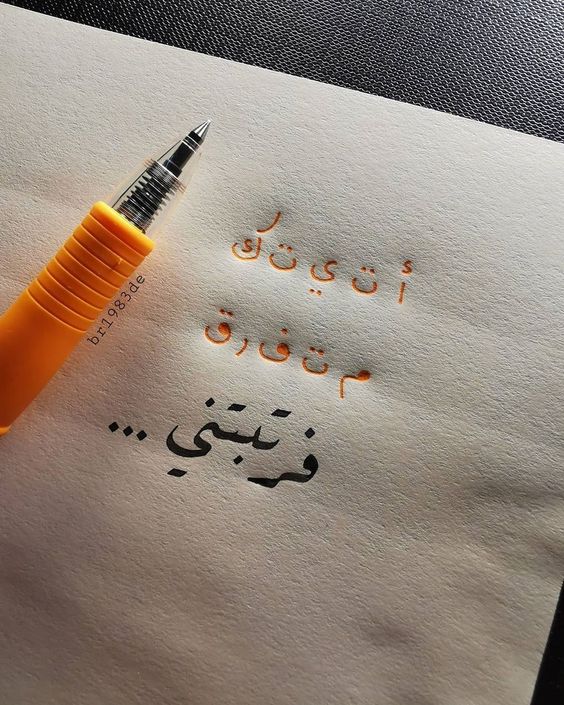 أ ت ي ت ك
م ت ف ر ق
فرتبتني ...
br1983de